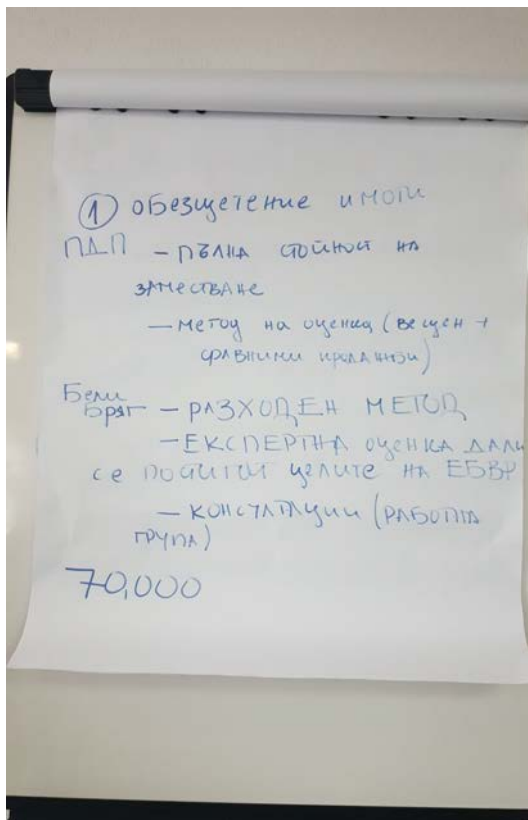 ① обезщетение имоти
ПДП – пълна стойност на
заместване
– метод на оценка (вещен +
сравними продажби)
Бели
Бряг – РАЗХОДЕН МЕТОД
– ЕКСПЕРТНА оценка дали
се постигат целите на ЕБВР
– консултации (РАБОТНА
ГРУПА)
70,000